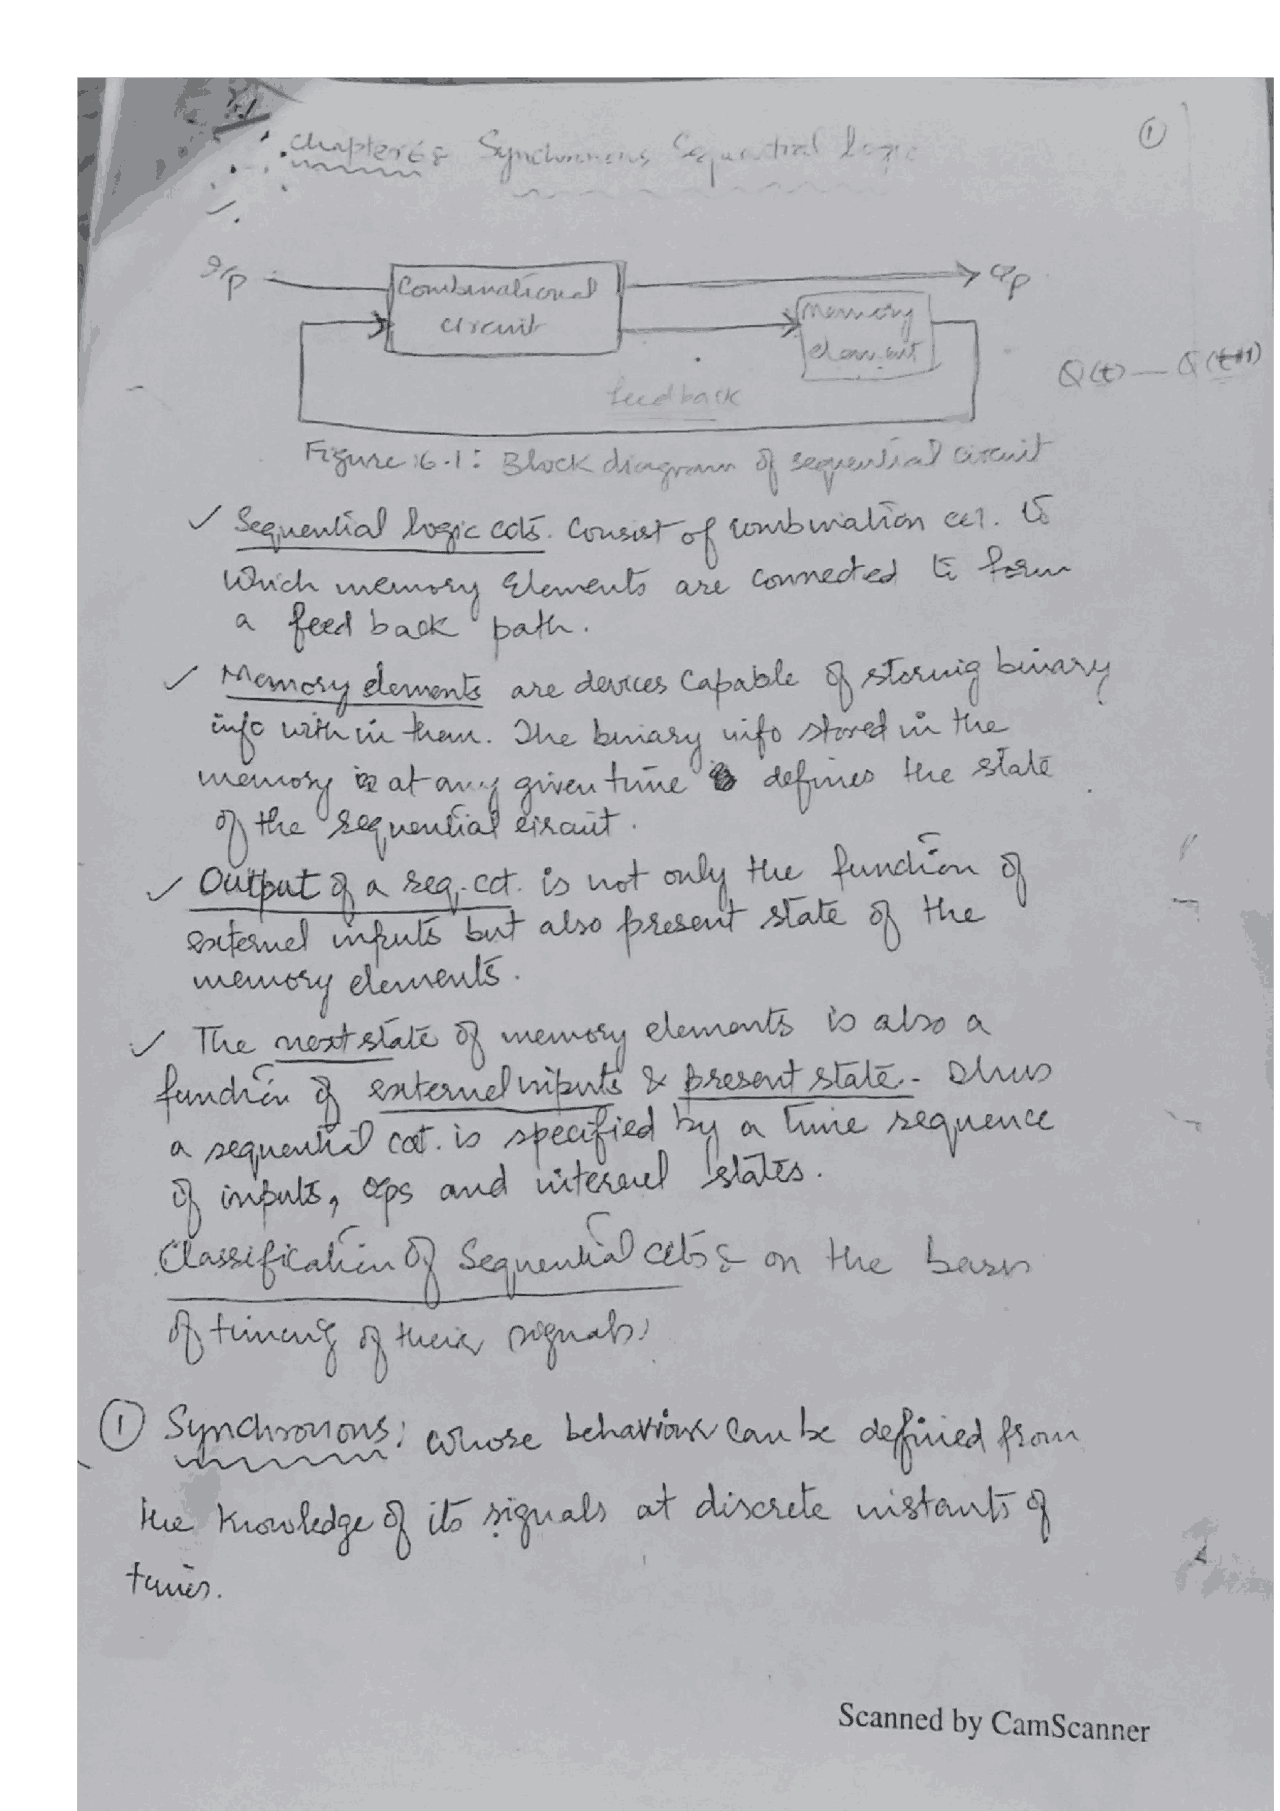 ①
Chapter 6: Synchronous Sequential Logic
I/p
Combinational
circuit
O/p
Memory
element
feedback
Q(t) — Q(t+1)
Figure: 6.1: Block diagram of sequential circuit
✓ Sequential logic ccts. Consist of combination cct. to
which memory Elements are connected to form
a feed back path.
✓ Memory elements are devices capable of storing binary
info with in them. The binary info stored in the
memory at any given time defines the state
of the sequential circuit.
✓ Output of a seq. cct. is not only the function of
externel inputs but also present state of the
memory elements.
✓ The next state of memory elements is also a
function of externel inputs & present state. Thus
a sequential cct. is specified by a time sequence
of inputs, o/ps and internel states.
Classification of Sequential ccts: on the basis
of timing of their signals:
① Synchronous: whose behaviour can be defined from
the knowledge of its signals at discrete instants of
times.
Scanned by CamScanner